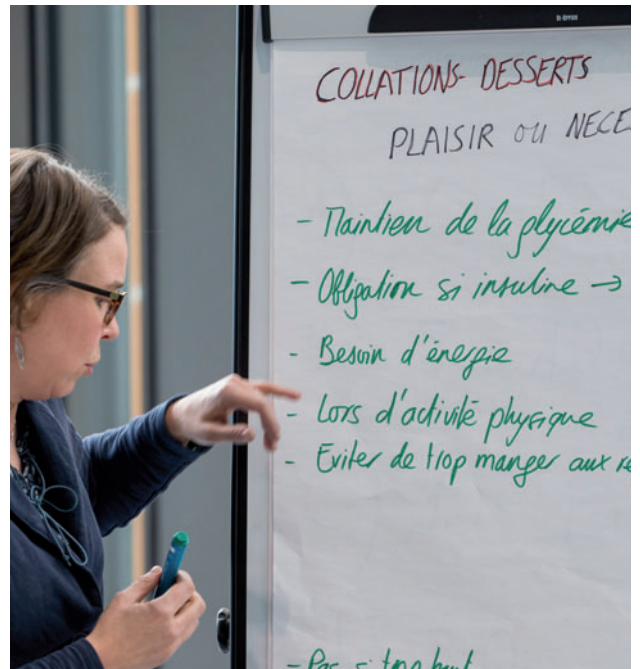 COLLATIONS- DESSERTS
PLAISIR OU NECE
- Maintien de la glycémie
- Obligation si insuline →
- Besoin d'énergie
- Lors d'activité physique
- Eviter de trop manger aux re
- Pas si trop haut